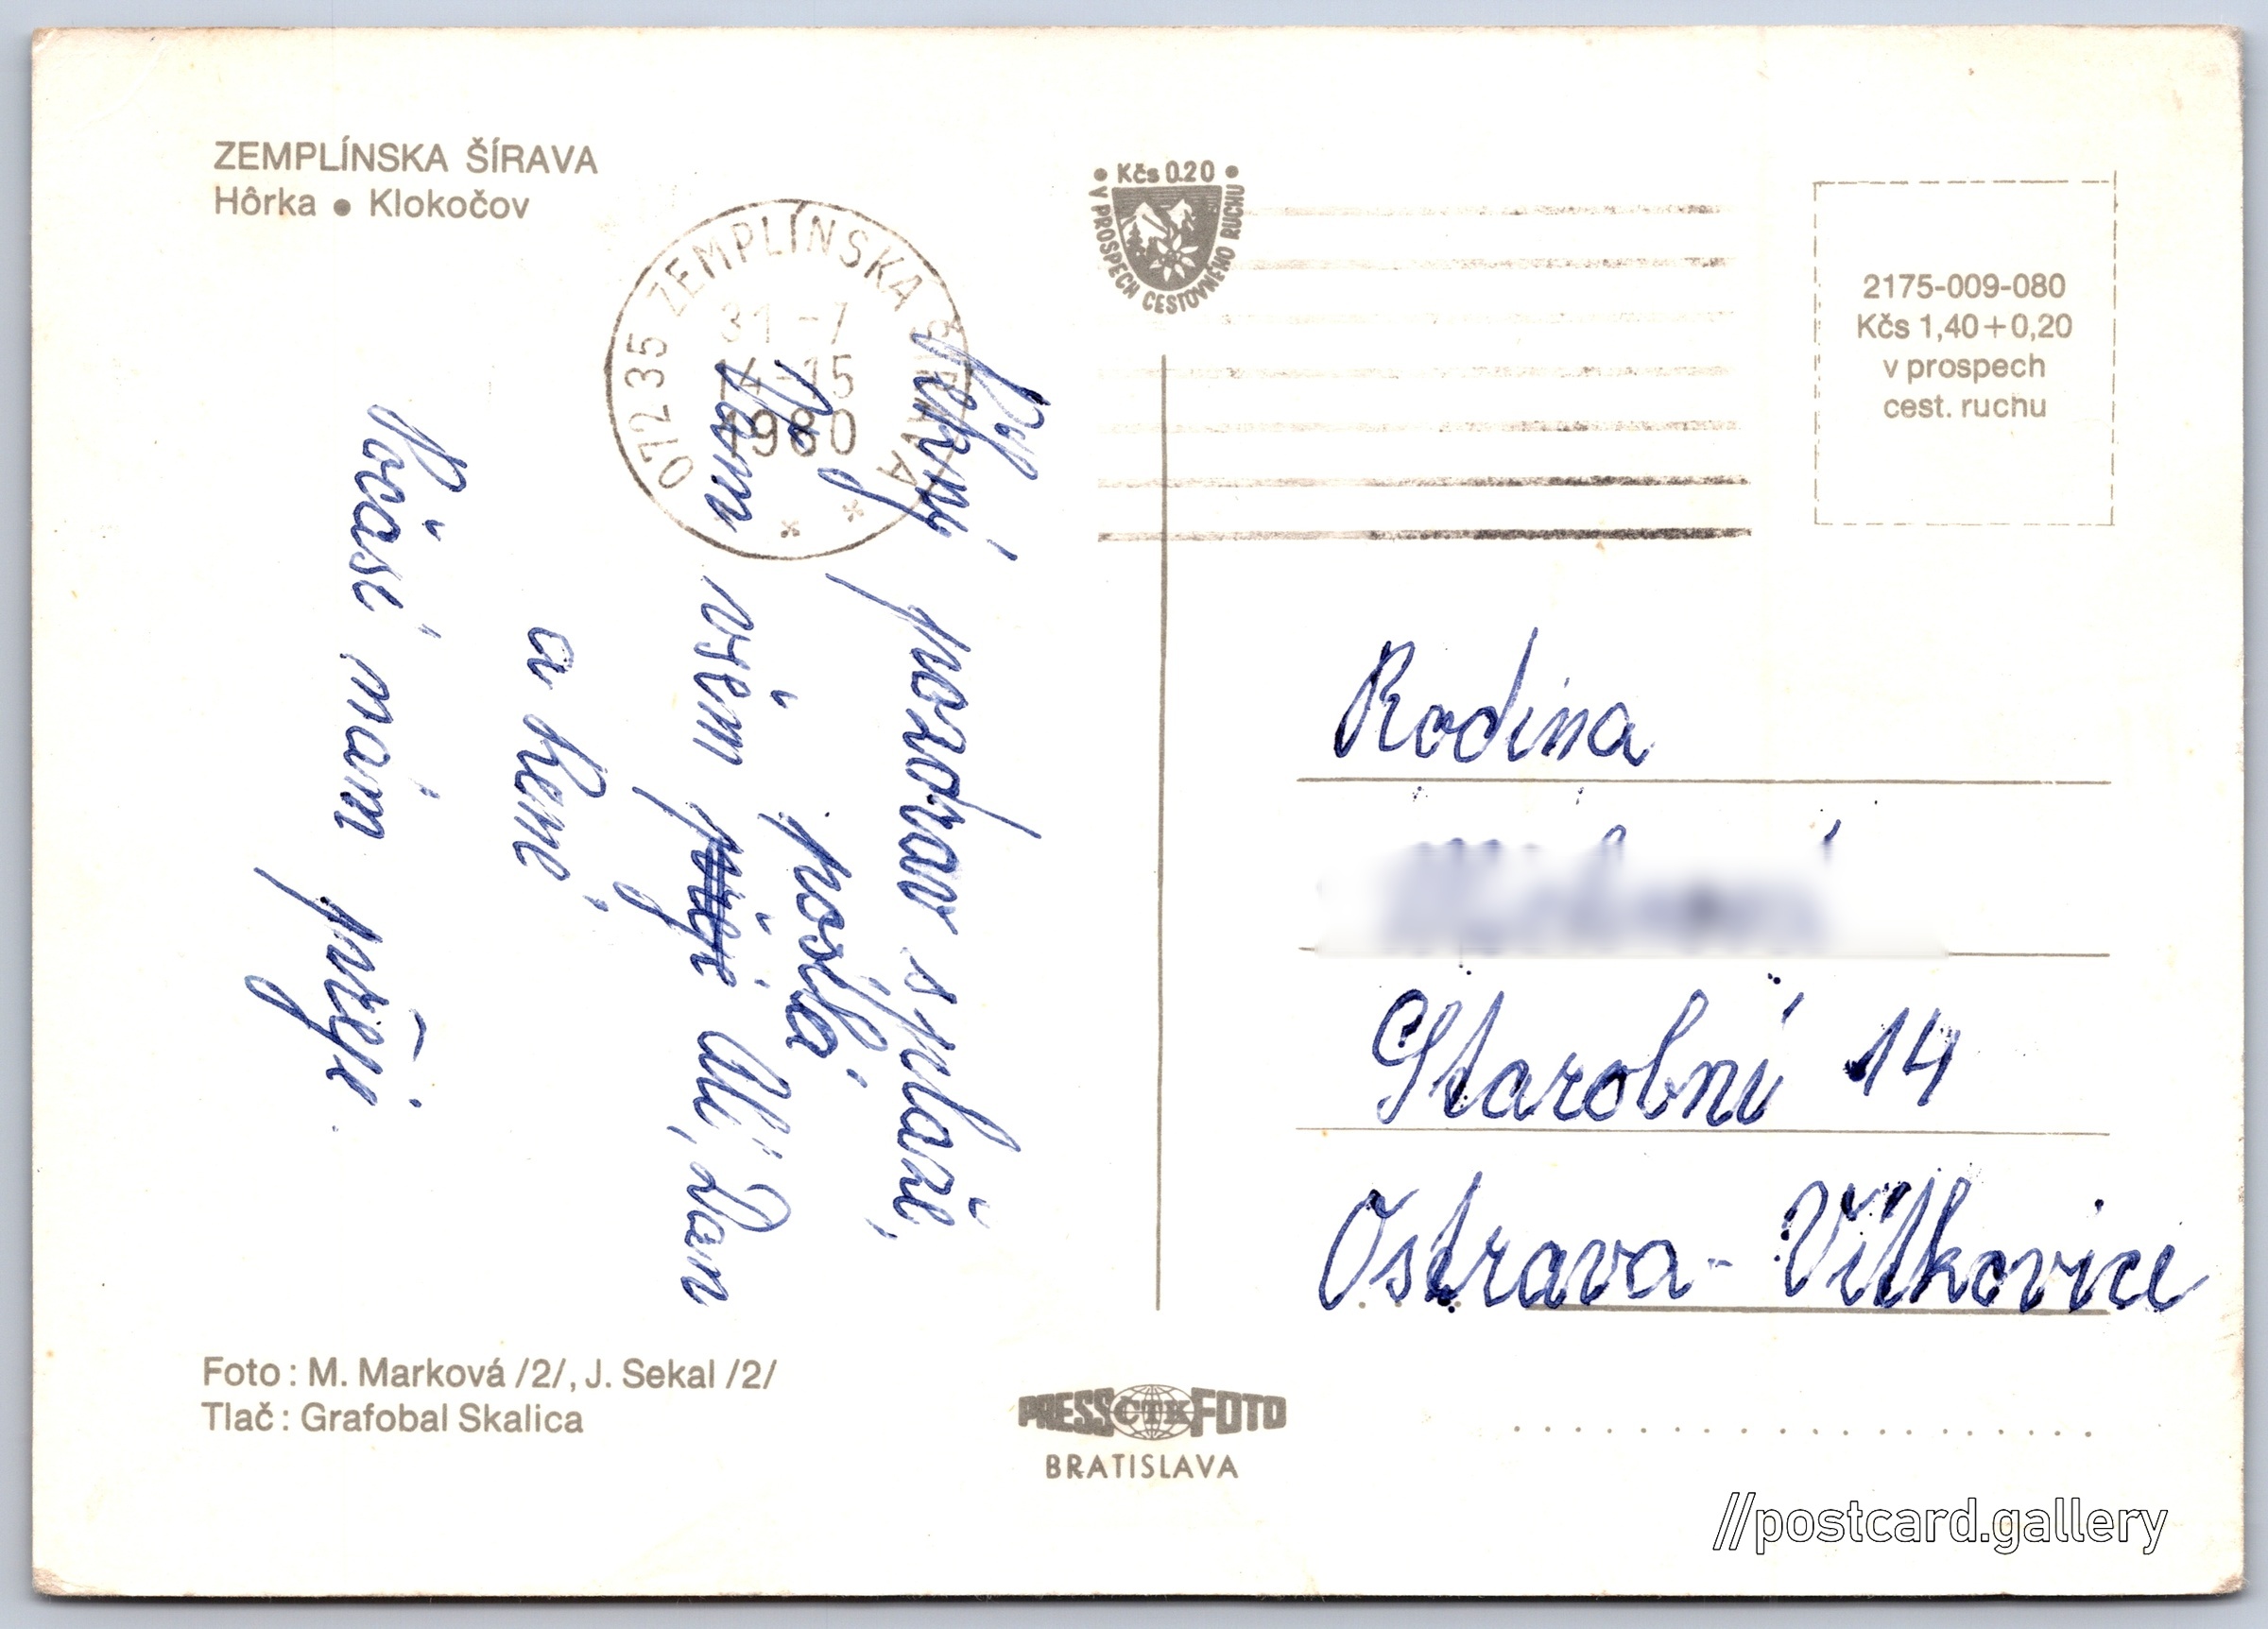 ZEMPLÍNSKA ŠÍRAVA
Hôrka • Klokočov
• Kčs 0.20 •
V PROSPECH CESTOVNÉHO RUCHU
072 35 ZEMPLÍNSKA ŠÍRAVA
31 -7
14-15
1980
2175-009-080
Kčs 1,40+0,20
v prospech
cest. ruchu
Pěkný pozdrav s pláže,
posílá
Vám všem Dan
a René
Počasí nám přeje.
Rodina
Starobní 14
Ostrava - Vítkovice
Foto: M. Marková /2/, J. Sekal /2/
Tlač: Grafobal Skalica
PRESS ČTK FOTO
BRATISLAVA
//postcard.gallery